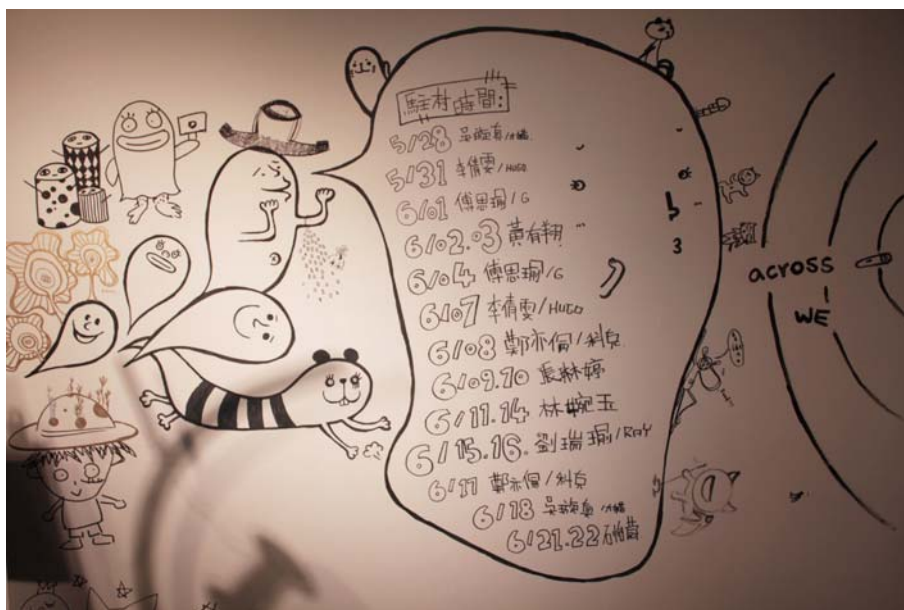 駐村時間:
5/28 吳
5/31 李倩雯/HUGO
6/01 傅思瑜/G
6/02.03 黃有翔
6/04 傅思瑜/G
6/07 李倩雯/HUGO
6/08 鄭亦佩/科克
6/09.10 張赫婷
6/11.14 林婉玉
6/15.16. 劉瑞瑜/RAY
6/17 鄭亦佩/科克
6/18 吳
6/21.22
across
WE